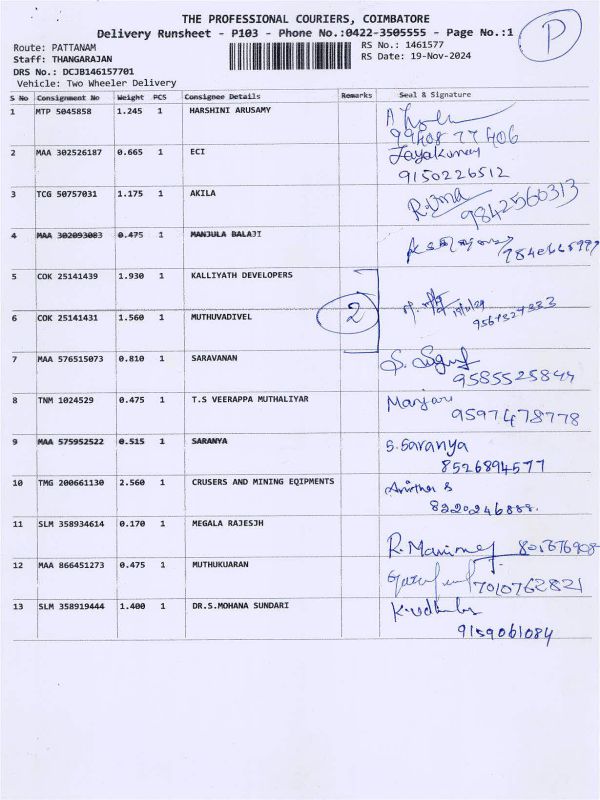 THE PROFESSIONAL COURIERS, COIMBATORE
Delivery Runsheet - P103 - Phone No.:0422-3505555 - Page No.:1
P
Route: PATTANAM
RS No.: 1461577
Staff: THANGARAJAN
RS Date: 19-Nov-2024
DRS No.: DCJB146157701
Vehicle: Two Wheeler Delivery
S No Consignment No Weight PCS Consignee Details Remarks Seal & Signature
1 MTP 5045858 1.245 1 HARSHINI ARUSAMY
99408 77406
2 MAA 302526187 0.665 1 ECI Jayakumar
9150226512
3 TCG 50757031 1.175 1 AKILA
9842560313
4 MAA 302093083 0.475 1 MANJULA BALAJI
5 COK 25141439 1.930 1 KALLIYATH DEVELOPERS
2
6 COK 25141431 1.560 1 MUTHUVADIVEL
7 MAA 576515073 0.810 1 SARAVANAN
9585525844
8 TNM 1024529 0.475 1 T.S VEERAPPA MUTHALIYAR
9597478778
9 MAA 575952522 0.515 1 SARANYA S. Saranya
8526894577
10 TMG 200661130 2.560 1 CRUSERS AND MINING EQIPMENTS
8220246888.
11 SLM 358934614 0.170 1 MEGALA RAJESJH
12 MAA 866451273 0.475 1 MUTHUKUARAN
7010762821
13 SLM 358919444 1.400 1 DR.S.MOHANA SUNDARI
9159061084